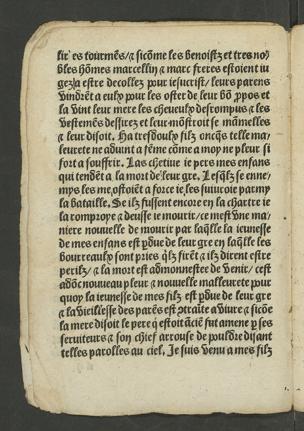 lir es tourmēs/ ⁊ sicōme les benoistz et tres no⸗
bles hōmes marcellin ⁊ marc freres estoient iu
gez a estre decollez pour iesucrist/leurs parens
vindrēt a eulx pour les oster de leur bō ꝓpos et
la vint leur mere les cheueulx desrompus ⁊ les
vestemēs dessirez et leur mōstroit se māmelles
⁊ leur disoit. Ha tresdoulx filz oncq̄s telle ma⸗
leurete ne aduint a fēme cōme a moy ne pleur si
fort a souffrir. Las chetiue ie pers mes enfans
qui tendēt a la mort de leur gre. Lesq̄lz se enne⸗
mys les me ostoiēt a force ie les suiuroie parmy
la bataille. Se ilz fussent encore en la chartre ie
la romproye ⁊ deusse ie mourir/ce mest vne ma⸗
niere nouuelle de mourir par laq̄lle la ieunesse
de mes enfans est ꝑdue de leur gre en laq̄lle les
bourreaulx sont pries q̄lz firēt ⁊ ilz dirent estre
perilz/⁊ la mort est admonnestee de venir/cest
adōc nouueau pleur ⁊ nouuelle malleurete pour
quoy la ieunesse de mes filz est ꝑdue de leur gre
⁊ la vieillesse des parēs est ꝯtraite a viure ⁊ sicōe
la mere disoit le pere q̄ estoit āciē fut amene ꝑ ses
seruiteurs ⁊ son chief arrouse de pouldre disant
telles parolles au ciel. Je suis venu a mes filz